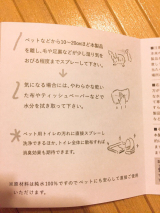 ペットなどから10〜20cmほど本製品
を離し、毛や皮膚などが少し湿り気を
おびる程度までスプレーして下さい。
1
2
気になる場合には、やわらかな乾い
た布やティッシュペーパーなどで
水分を拭き取って下さい。
*
ペット用トイレの汚れに直接スプレーし
洗浄できるほか、トイレ全体に散布すれば
消臭効果も期待できます。
原材料は純水100%ですのでペットにも安心して直接ご使用
いただけます。